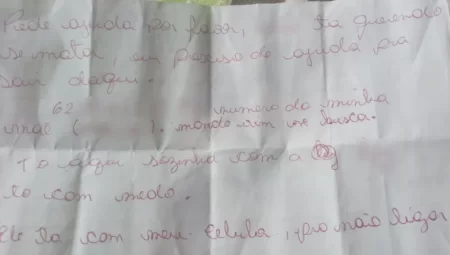 Pede ajuda por favor, ta querendo
se mata, eu preciso de ajuda pra
sair daqui.
62 numero da minha
mãe ( ). manda um me busca.
To aqui sozinha com a
to com medo.
Ele ta com meu celula, pro não ligar